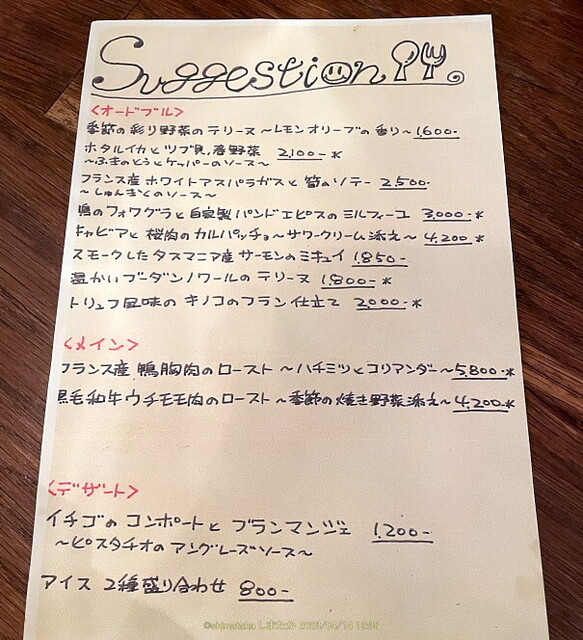 Suggestion
<オードブル>
季節の彩り野菜のテリーヌ ~レモンオリーブの香り~ 1,600-
ホタルイカとツブ貝、春野菜 2,100-*
~ふきのとうとケッパーのソース~
フランス産ホワイトアスパラガスと筍のソテー 2,500-
~しゅんぎくのソース~
鴨のフォワグラと自家製パンドエピスのミルフィーユ 3,000-*
キャビアと桜肉のカルパッチョ~サワークリーム添え~ 4,200-*
スモークしたタスマニア産サーモンのミキュイ 1,850-
温かいブーダンノワールのテリーヌ 1,800-*
トリュフ風味のキノコのフラン仕立て 2,000-*
<メイン>
フランス産鴨胸肉のロースト ~ハチミツとコリアンダー~ 5,800-*
黒毛和牛ウチモモ肉のロースト~季節の焼き野菜添え~ 4,200-*
<デザート>
イチゴのコンポートとブランマンジェ 1,200-
~ピスタチオのアングレーズソース~
アイス 2種盛り合わせ 800-